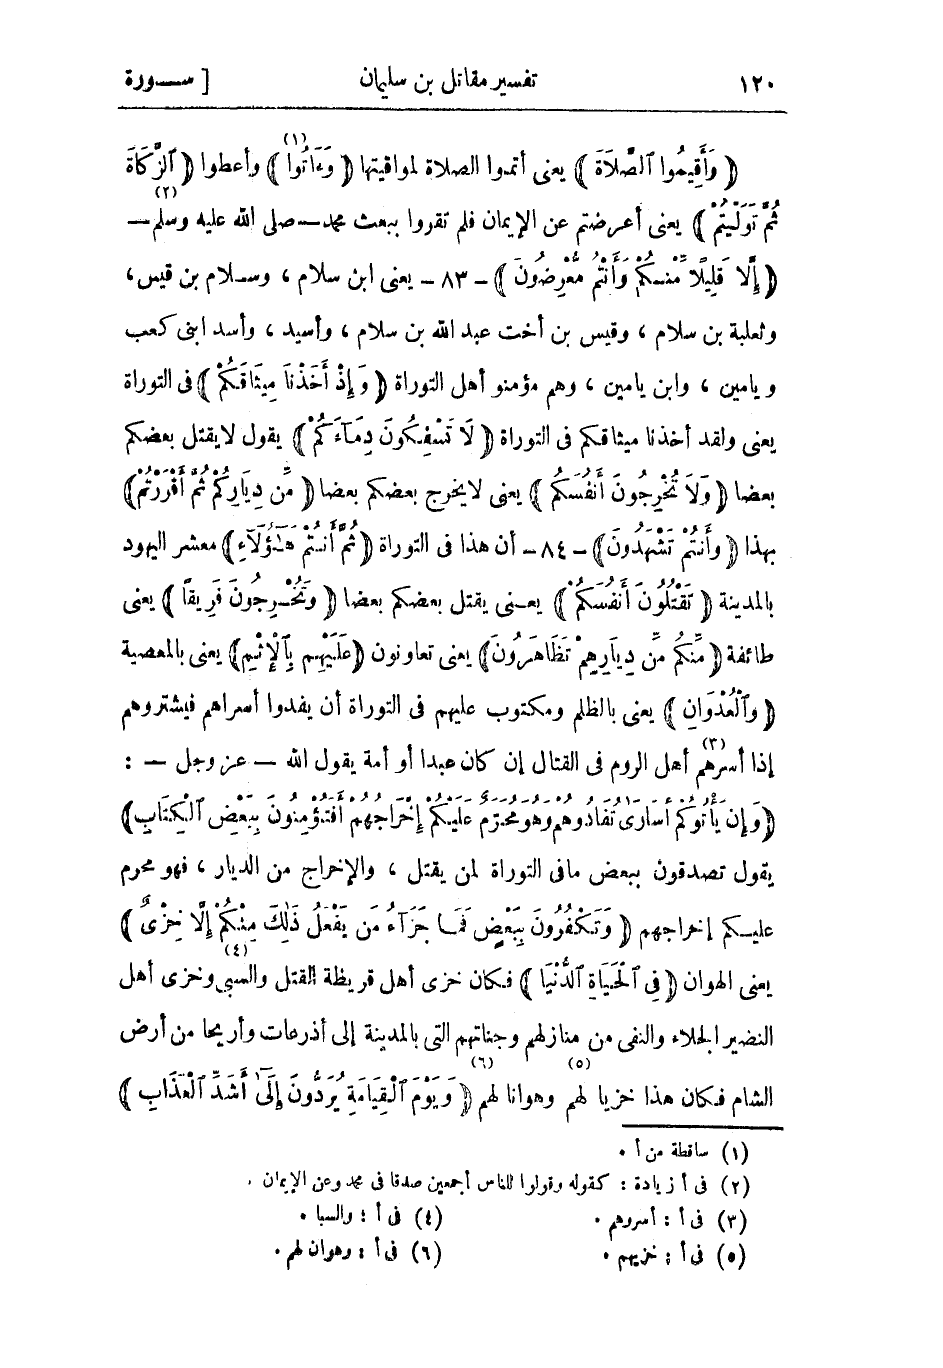 ١٢٠ تفسير مقاتل بن سليمان [ ســورة
﴿ وَأَقِيمُوا ٱلصَّلَاةَ ﴾ يعنى أتموا الصلاة لمواقيتها ﴿ وَءَاتُوا (١) ﴾ وأعطوا ﴿ ٱلزَّكَاةَ
ثُمَّ تَوَلَّيْتُمْ ﴾ يعنى أعرضتم عن الإيمان فلم تقروا ببعث محمد — صلى الله عليه وسلم (٢) —
﴿ إِلَّا قَلِيلًا مِّنكُمْ وَأَنتُم مُّعْرِضُونَ ﴾ - ٨٣ - يعنى ابن سلام ، وسلام بن قيس،
وثعلبة بن سلام ، وقيس بن أخت عبد الله بن سلام ، وأسيد ، وأسد ابنى كعب
و يامين ، وابن يامين ، وهم مؤمنو أهل التوراة ﴿ وَإِذْ أَخَذْنَا مِيثَاقَكُمْ ﴾ فى التوراة
يعنى ولقد أخذنا ميثاقكم فى التوراة ﴿ لَا تَسْفِكُونَ دِمَآءَكُمْ ﴾ يقول لايقتل بعضكم
بعضا ﴿ وَلَا تُخْرِجُونَ أَنفُسَكُم ﴾ يعنى لايخرج بعضكم بعضا ﴿ مِّن دِيَارِكُمْ ثُمَّ أَقْرَرْتُمْ ﴾
بهذا ﴿ وَأَنتُمْ تَشْهَدُونَ ﴾ - ٨٤ - أن هذا فى التوراة ﴿ ثُمَّ أَنتُمْ هَـٰٓؤُلَآءِ ﴾ معشر اليهود
بالمدينة ﴿ تَقْتُلُونَ أَنفُسَكُمْ ﴾ يعنى يقتل بعضكم بعضا ﴿ وَتُخْرِجُونَ فَرِيقًا ﴾ يعنى
طائفة ﴿ مِّنكُم مِّن دِيَارِهِمْ تَظَاهَرُونَ ﴾ يعنى تعاونون ﴿ عَلَيْهِم بِٱلْإِثْمِ ﴾ يعنى بالمعصية
﴿ وَٱلْعُدْوَانِ ﴾ يعنى بالظلم ومكتوب عليهم فى التوراة أن يفدوا أسراهم فيشتروهم
إذا أسرهم (٣) أهل الروم فى القتال إن كان عبدا أو أمة يقول الله — عز وجل — :
﴿ وَإِن يَأْتُوكُمْ أُسَارَىٰ تُفَادُوهُمْ وَهُوَ مُحَرَّمٌ عَلَيْكُمْ إِخْرَاجُهُمْ أَفَتُؤْمِنُونَ بِبَعْضِ ٱلْكِتَابِ ﴾
يقول تصدقون ببعض مافى التوراة لمن يقتل ، والإخراج من الديار ، فهو محرم
عليكم إخراجهم ﴿ وَتَكْفُرُونَ بِبَعْضٍ فَمَا جَزَآءُ مَن يَفْعَلُ ذَٰلِكَ مِنْكُمْ إِلَّا خِزْىٌ ﴾
يعنى الهوان ﴿ فِى ٱلْحَيَاةِ ٱلدُّنْيَا ﴾ فكان خزى أهل قريظة القتل والسبى (٤) وخزى أهل
النضير الجلاء والنفى من منازلهم وجناتهم التى بالمدينة إلى أذرعات وأريحا من أرض
الشام فكان هذا خزيا لهم (٥) وهوانا لهم (٦) ﴿ وَيَوْمَ ٱلْقِيَامَةِ يُرَدُّونَ إِلَىٰٓ أَشَدِّ ٱلْعَذَابِ ﴾
(١) ساقطة من أ .
(٢) فى أ زيادة : كقوله وقولوا للناس أجمعين صدقا فى محمد وعن الإيمان .
(٣) فى أ : أسروهم . (٤) فى أ : والسبا .
(٥) فى أ : خزيهم . (٦) فى أ : وهوان لهم .